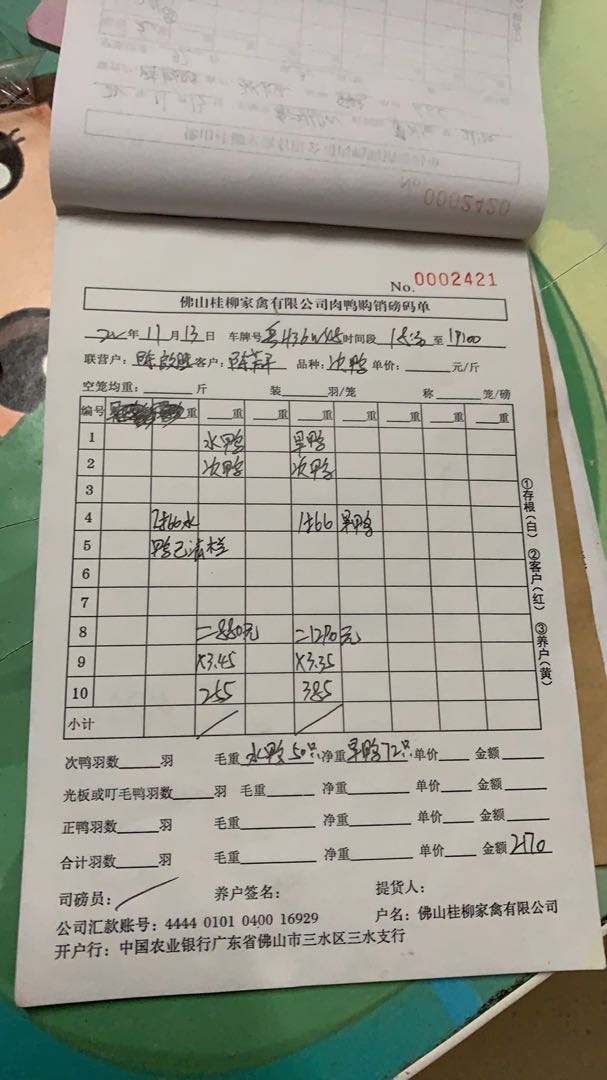 No. 0002420
No. 0002421
佛山桂柳家禽有限公司肉鸭购销磅码单
年11月13日 车牌号 时间段 至 19:00
联营户: 客户: 品种: 次鸭 单价: 元/斤
空笼均重: 斤 装 羽/笼 称 笼/磅
编号 重 重 重 重 重 重 重
1 水鸭 旱鸭
2 次鸭 次鸭
3
4 水 旱鸭
5 鸭已清栏
6
7
8 =880元 =1290元
9 ×3.45 ×3.35
10 255 385
小计
①存根(白) ②客户(红) ③养户(黄)
次鸭羽数 羽 毛重 水鸭50只 净重 旱鸭72只 单价 金额
光板或叮毛鸭羽数 羽 毛重 净重 单价 金额
正鸭羽数 羽 毛重 净重 单价 金额
合计羽数 羽 毛重 净重 单价 金额 2170
司磅员: 养户签名: 提货人:
公司汇款账号: 4444 0101 0400 16929 户名: 佛山桂柳家禽有限公司
开户行: 中国农业银行广东省佛山市三水区三水支行